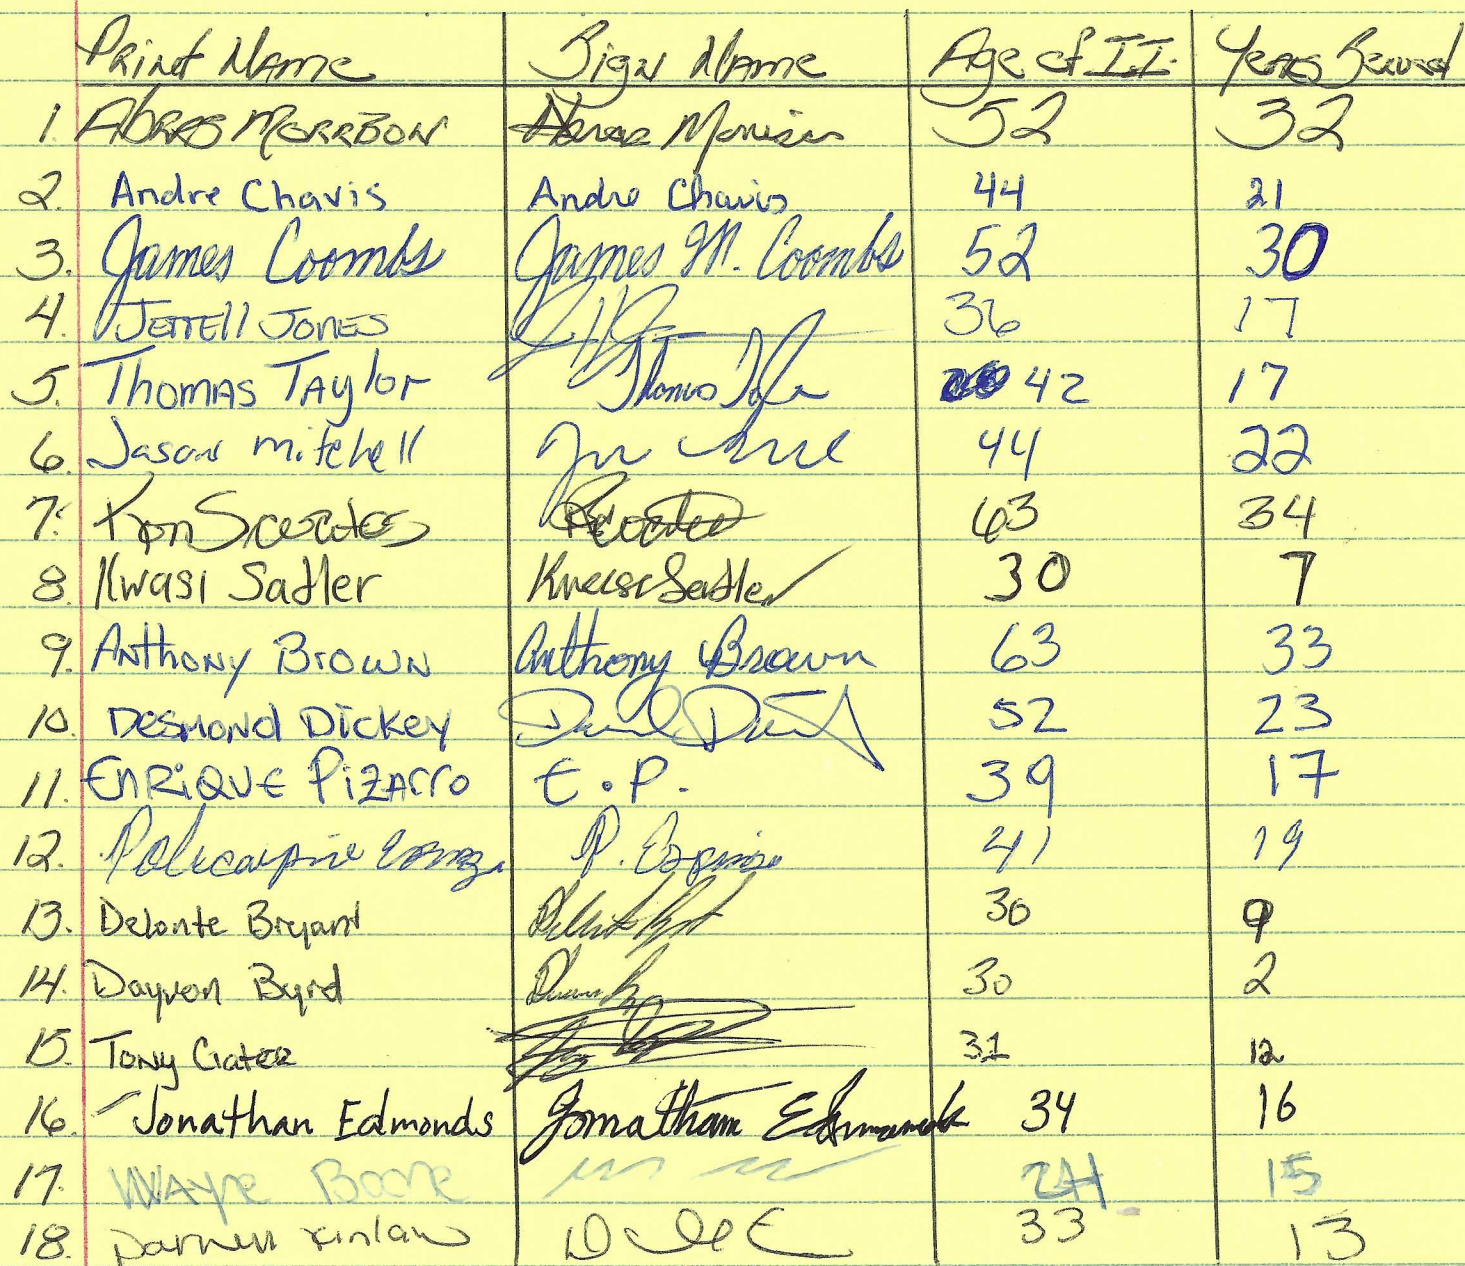 Print Name Sign Name Age of I.I. Years Served
1. Abras Morrison Abras Morrison 52 32
2. Andre Chavis Andre Chavis 44 21
3. James Coombs James M. Coombs 52 30
4. Jerrell Jones 36 17
5. Thomas Taylor Thomas Taylor 42 17
6. Jason Mitchell 44 22
7. Ron Socrates 63 34
8. Kwasi Sadler Kwasi Sadler 30 7
9. Anthony Brown Anthony Brown 63 33
10. Desmond Dickey 52 23
11. Enrique Pizarro E.P. 39 17
12. Policarpio Espinoza P. Espinoza 41 19
13. Delonte Bryant 30 9
14. Dayvon Byrd 30 2
15. Tony Crater 31 12
16. Jonathan Edmonds Jonathan Edmonds 34 16
17. Wayne Boone 15
18. Darnell Kinlaw 33 13